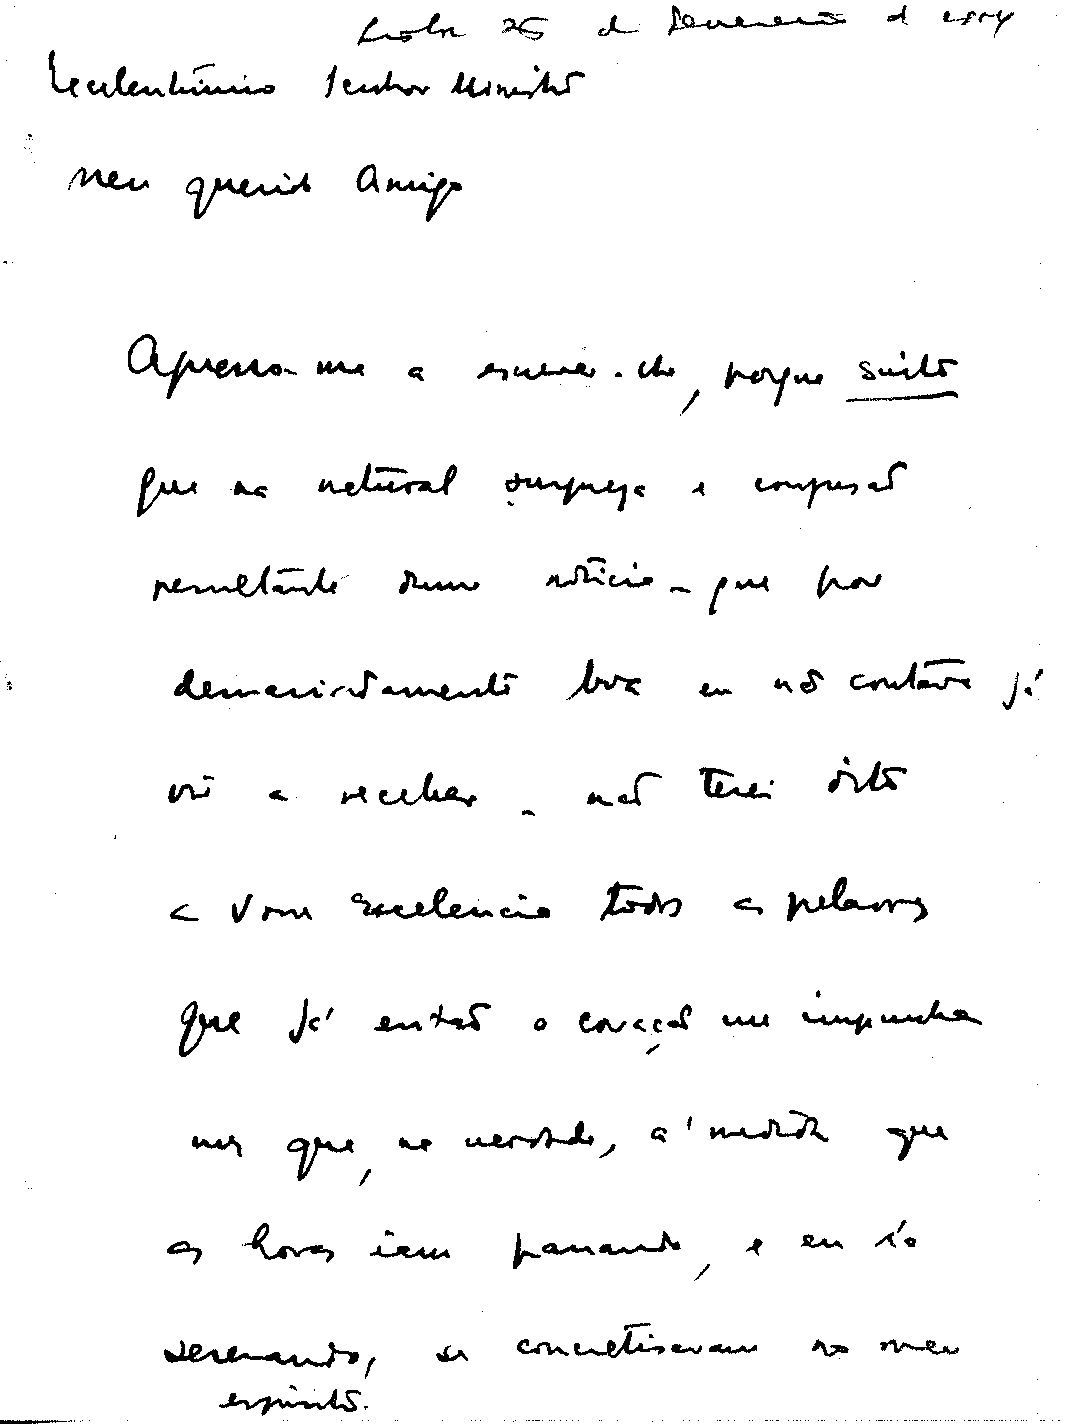 Lisboa 26 de Fevereiro de
Excelentíssimo Senhor Ministro
Meu querido Amigo
Apresso-me a escrever-lhe, porque sinto
que na natural surpreza e confusão
resultante duma notícia - que por
demasiadamente boa eu não contava já
vir a receber - não terei dito
a Vossa Excelencia todas as palavras
que já então o coração me impunha
mas que, na verdade, à medida que
as horas iam passando, e eu ía
serenando, se concretisavam no meu
espírito.